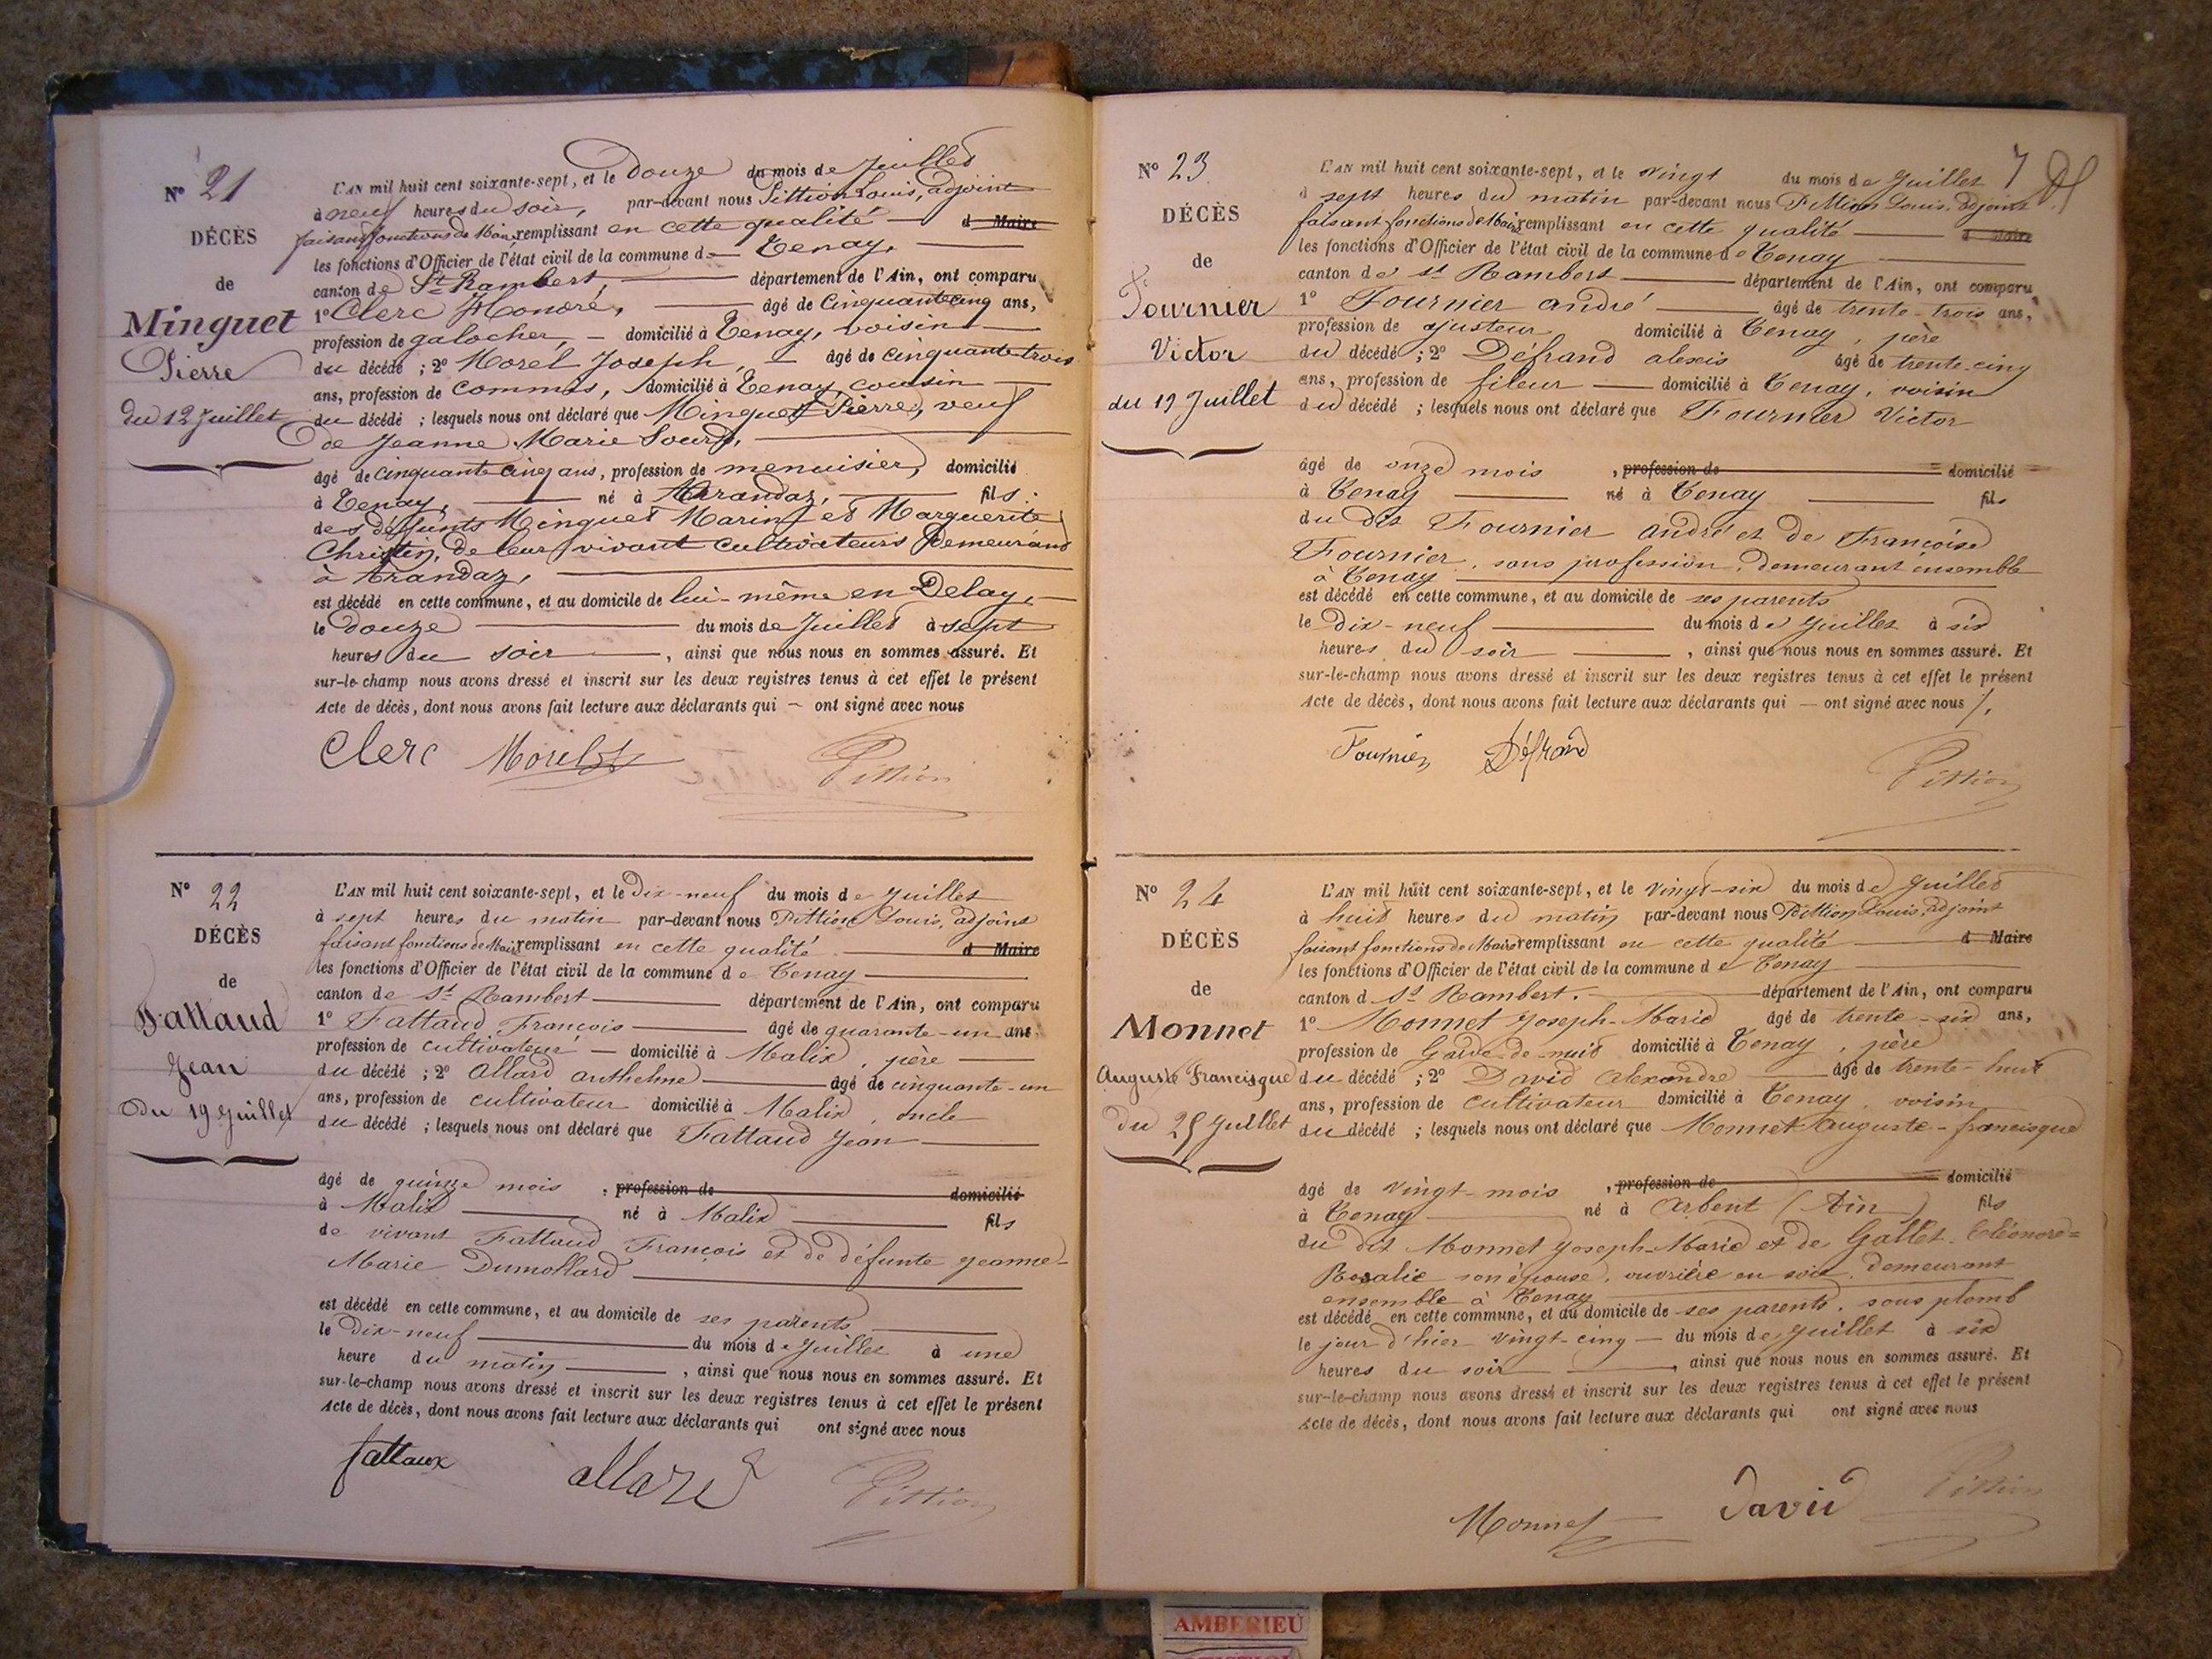 N° 21
DÉCÈS
de
Minguet
Pierre
du 12 Juillet
L'AN mil huit cent soixante-sept, et le Douze du mois de Juillet
à neuf heures du soir, par-devant nous Pittion Louis, adjoint
faisant fonctions de Maire remplissant en cette qualité d Maire
les fonctions d'Officier de l'état civil de la commune d Tenay,
canton de St Rambert, département de l'Ain, ont comparu
1° Clerc Honoré, âgé de Cinquante cinq ans,
profession de galocher, domicilié à Tenay, voisin
du décédé ; 2° Morel Joseph, âgé de Cinquante-trois
ans, profession de Commis, domicilié à Tenay, cousin
du décédé ; lesquels nous ont déclaré que Minguet Pierre, veuf
de Jeanne Marie Sourd,
âgé de Cinquante cinq ans, profession de menuisier, domicilié
à Tenay, né à Arandaz, fils
des défunts Minguet Marin et Marguerite
Christin, de leur vivant cultivateurs demeurant
à Arandaz,
est décédé en cette commune, et au domicile de lui-même en Delay,
le Douze du mois de Juillet à sept
heures du soir, ainsi que nous nous en sommes assuré. Et
sur-le-champ nous avons dressé et inscrit sur les deux registres tenus à cet effet le présent
Acte de décès, dont nous avons fait lecture aux déclarants qui — ont signé avec nous
Clerc Morel Pittion
N° 22
DÉCÈS
de
Fattaud
Jean
Du 19 Juillet
L'AN mil huit cent soixante-sept, et le Dix-neuf du mois de Juillet
à sept heures du matin par-devant nous Pittion Louis, adjoint
faisant fonctions de Maire remplissant en cette qualité d Maire
les fonctions d'Officier de l'état civil de la commune de Tenay
canton de St Rambert département de l'Ain, ont comparu
1° Fattaud François âgé de quarante-un ans
profession de cultivateur domicilié à Malix, père
du décédé ; 2° Allard anthelme âgé de cinquante-un
ans, profession de cultivateur domicilié à Malix, oncle
du décédé ; lesquels nous ont déclaré que Fattaud Jean
âgé de quinze mois , profession de domicilié
à Malix né à Malix fils
de vivant Fattaud François et de défunte Jeanne-
Marie Dumollard
est décédé en cette commune, et au domicile de ses parents
le Dix-neuf du mois de Juillet à une
heure du matin , ainsi que nous nous en sommes assuré. Et
sur-le-champ nous avons dressé et inscrit sur les deux registres tenus à cet effet le présent
Acte de décès, dont nous avons fait lecture aux déclarants qui ont signé avec nous
fattaux allard Pittion
7
N° 23
DÉCÈS
de
Fournier
Victor
du 19 Juillet
L'AN mil huit cent soixante-sept, et le vingt du mois de Juillet
à sept heures du matin par-devant nous Pittion Louis, adjoint
faisant fonctions de Maire remplissant en cette qualité d Maire
les fonctions d'Officier de l'état civil de la commune de Tenay
canton de St Rambert département de l'Ain, ont comparu
1° Fournier andré âgé de trente-trois ans,
profession de ajusteur domicilié à Tenay, père
du décédé ; 2° Défrand alexis âgé de trente-cinq
ans, profession de fileur domicilié à Tenay, voisin
du décédé ; lesquels nous ont déclaré que Fournier Victor
âgé de onze mois , profession de domicilié
à Tenay né à Tenay fils
du dit Fournier andré et de Françoise
Fournier, sans profession, demeurant ensemble
à Tenay
est décédé en cette commune, et au domicile de ses parents
le Dix-neuf du mois de Juillet à six
heures du soir , ainsi que nous nous en sommes assuré. Et
sur-le-champ nous avons dressé et inscrit sur les deux registres tenus à cet effet le présent
Acte de décès, dont nous avons fait lecture aux déclarants qui — ont signé avec nous
Fournier Défrand Pittion
N° 24
DÉCÈS
de
Monnet
Auguste Francisque
Du 25 Juillet
L'AN mil huit cent soixante-sept, et le vingt-six du mois de Juillet
à huit heures du matin par-devant nous Pittion Louis, adjoint
faisant fonctions de Maire remplissant en cette qualité d Maire
les fonctions d'Officier de l'état civil de la commune de Tenay
canton d St Rambert. département de l'Ain, ont comparu
1° Monnet Joseph-Marie âgé de trente-six ans,
profession de Garde-de-nuit domicilié à Tenay, père
du décédé ; 2° David Alexandre âgé de trente-huit
ans, profession de Cultivateur domicilié à Tenay, voisin
du décédé ; lesquels nous ont déclaré que Monnet Auguste-francisque
âgé de vingt-mois , profession de domicilié
à Tenay né à Arbent (Ain) fils
du dit Monnet Joseph-Marie et de Gallet Eléonore=
Rosalie son épouse, ouvrière en soie, demeurant
ensemble à Tenay
est décédé en cette commune, et au domicile de ses parents, sous plomb
le jour d'hier vingt-cinq du mois de Juillet à six
heures du soir , ainsi que nous nous en sommes assuré. Et
sur-le-champ nous avons dressé et inscrit sur les deux registres tenus à cet effet le présent
Acte de décès, dont nous avons fait lecture aux déclarants qui ont signé avec nous
Monnet David Pittion
AMBERIEU